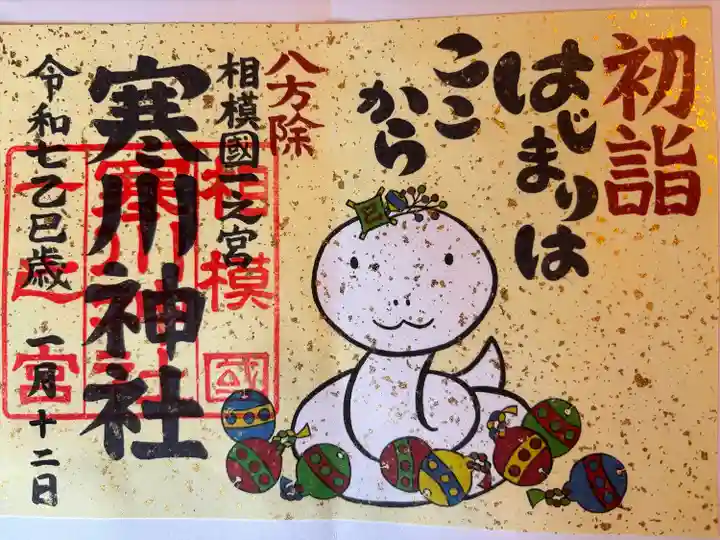 初詣
はじまりは
ここ
から
八方除
相模國一之宮
寒川神社
令和七乙巳歳 一月十二日
相模國
寒川神社
一之宮